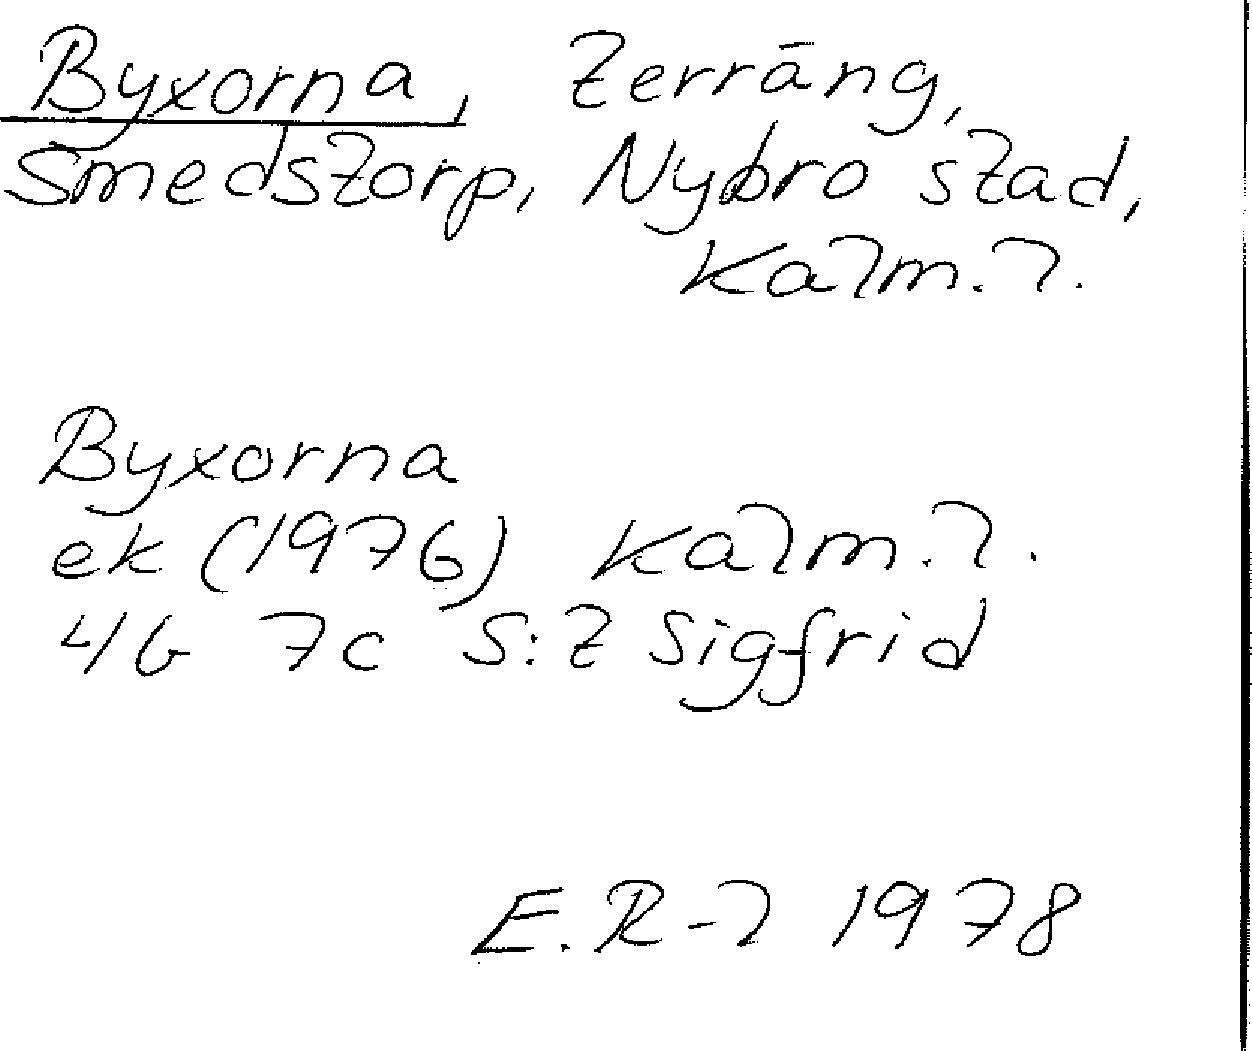 Byxorna, terräng,
Smedstorp, Nybro stad,
Kalm. l.
Byxorna
ek (1976) Kalm. l.
4G 7c S:t Sigfrid
E. R-l 1978